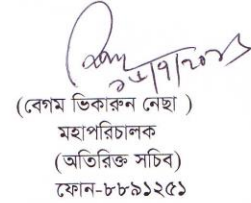 (বেগম ভিকারুন নেছা )
মহাপরিচালক
(অতিরিক্ত সচিব)
ফোন-৮৮৯১২৫১